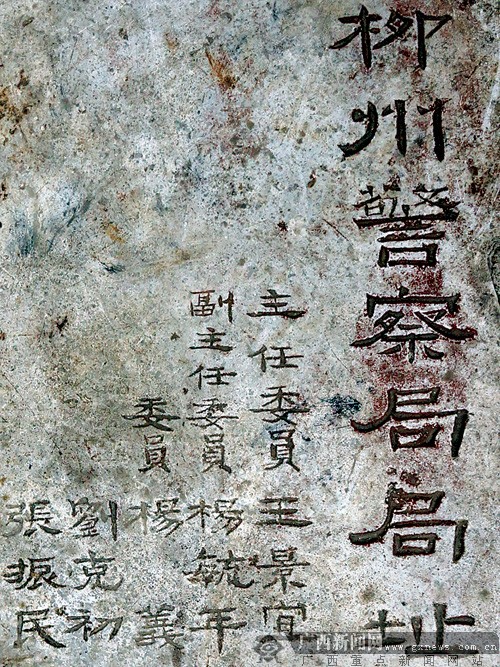 柳州警察局局址
主任委員 王景宜
副主任委員 楊毓年
委員 楊義
劉克初
張振民
广西新闻网
www.gxnews.com.cn
广西重点新闻网站